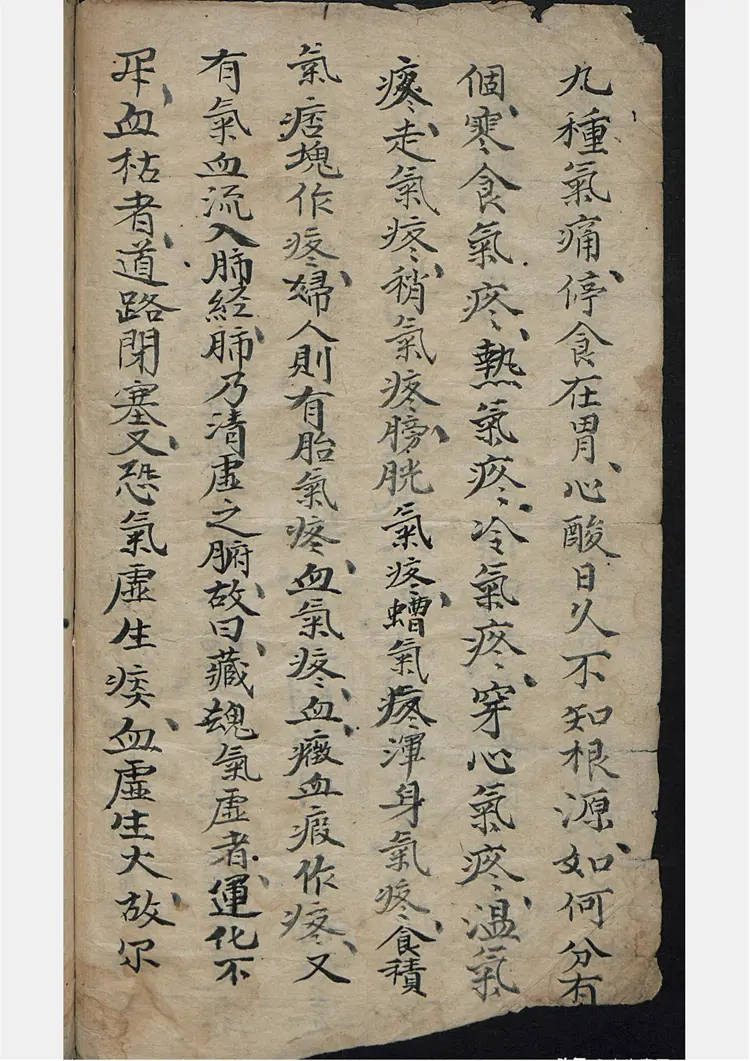 九種氣痛停食在胃心酸日久不知根源如何分有
個寒食氣疼熱氣疼冷氣疼穿心氣疼温氣
疼走氣疼稍氣疼膀胱氣疼螬氣疼渾身氣疼食積
氣痞塊作疼婦人則有胎氣疼血氣疼血癥血瘕作疼又
有氣血流入肺経肺乃清虛之腑故曰藏魄氣虛者運化不
血枯者道路閉塞又恐氣虛生痰血虛生火故尔